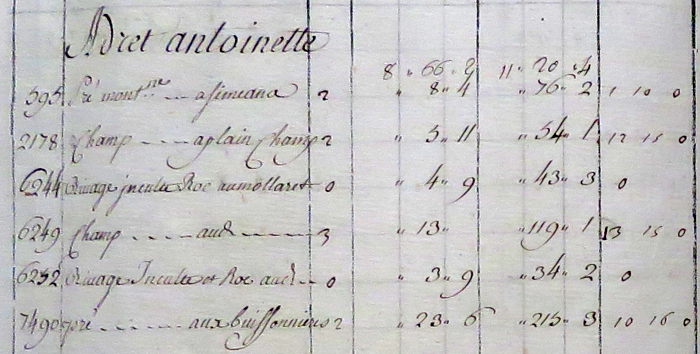 Adret antoinette
8 " 66 " 2 11 " 20 " 4
595 Pré mont.ne a simeana 2 " 8 " 4 " 76 " 2 1 10 0
2178 Champ a plain Champ 2 " 5 " 11 " 54 " 1 12 15 0
6244 Rivage jnculte Roc au mollaret 0 " 4 " 9 " 43 " 3 0
6249 Champ aud 3 " 13 " " 119 " 1 13 15 0
6252 Rivage Inculte et Roc aud 0 " 3 " 9 " 34 " 2 0
7490 pré aux buissonnieres 2 " 23 " 6 " 215 " 3 10 16 0